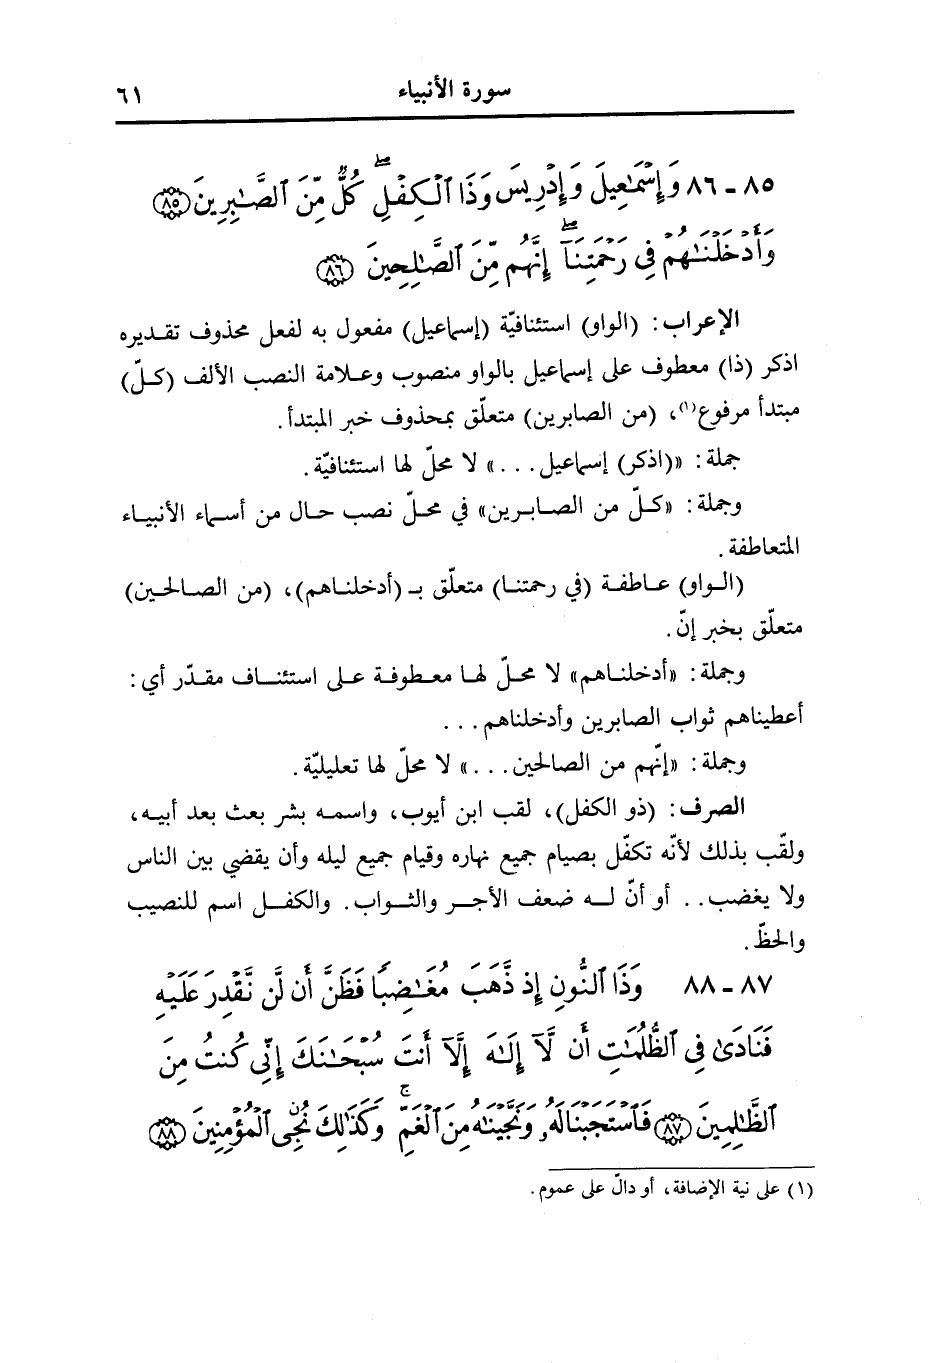 سورة الأنبياء ٦١
٨٥ ـ ٨٦ وَإِسْمَٰعِيلَ وَإِدْرِيسَ وَذَا ٱلْكِفْلِ ۖ كُلٌّ مِّنَ ٱلصَّٰبِرِينَ ﴿٨٥﴾
وَأَدْخَلْنَٰهُمْ فِى رَحْمَتِنَآ ۖ إِنَّهُم مِّنَ ٱلصَّٰلِحِينَ ﴿٨٦﴾
الإعراب: (الواو) استئنافيّة (إسماعيل) مفعول به لفعل محذوف تقديره
اذكر (ذا) معطوف على إسماعيل بالواو منصوب وعلامة النصب الألف (كلّ)
مبتدأ مرفوع(١)، (من الصابرين) متعلّق بمحذوف خبر المبتدأ.
جملة: «(اذكر) إسماعيل...» لا محلّ لها استئنافيّة.
وجملة: «كلّ من الصابرين» في محلّ نصب حال من أسماء الأنبياء
المتعاطفة.
(الواو) عاطفة (في رحمتنا) متعلّق بـ (أدخلناهم)، (من الصالحين)
متعلّق بخبر إنّ.
وجملة: «أدخلناهم» لا محلّ لها معطوفة على استئناف مقدّر أي:
أعطيناهم ثواب الصابرين وأدخلناهم...
وجملة: «إنّهم من الصالحين...» لا محلّ لها تعليليّة.
الصرف: (ذو الكفل)، لقب ابن أيوب، واسمه بشر بعث بعد أبيه،
ولقّب بذلك لأنّه تكفّل بصيام جميع نهاره وقيام جميع ليله وأن يقضي بين الناس
ولا يغضب.. أو أنّ له ضعف الأجر والثواب. والكفل اسم للنصيب
والحظّ.
٨٧ ـ ٨٨ وَذَا ٱلنُّونِ إِذ ذَّهَبَ مُغَٰضِبًا فَظَنَّ أَن لَّن نَّقْدِرَ عَلَيْهِ
فَنَادَىٰ فِى ٱلظُّلُمَٰتِ أَن لَّآ إِلَٰهَ إِلَّآ أَنتَ سُبْحَٰنَكَ إِنِّى كُنتُ مِنَ
ٱلظَّٰلِمِينَ ﴿٨٧﴾ فَٱسْتَجَبْنَا لَهُۥ وَنَجَّيْنَٰهُ مِنَ ٱلْغَمِّ ۚ وَكَذَٰلِكَ نُۨجِى ٱلْمُؤْمِنِينَ ﴿٨٨﴾
(١) على نية الإضافة، أو دالّ على عموم.